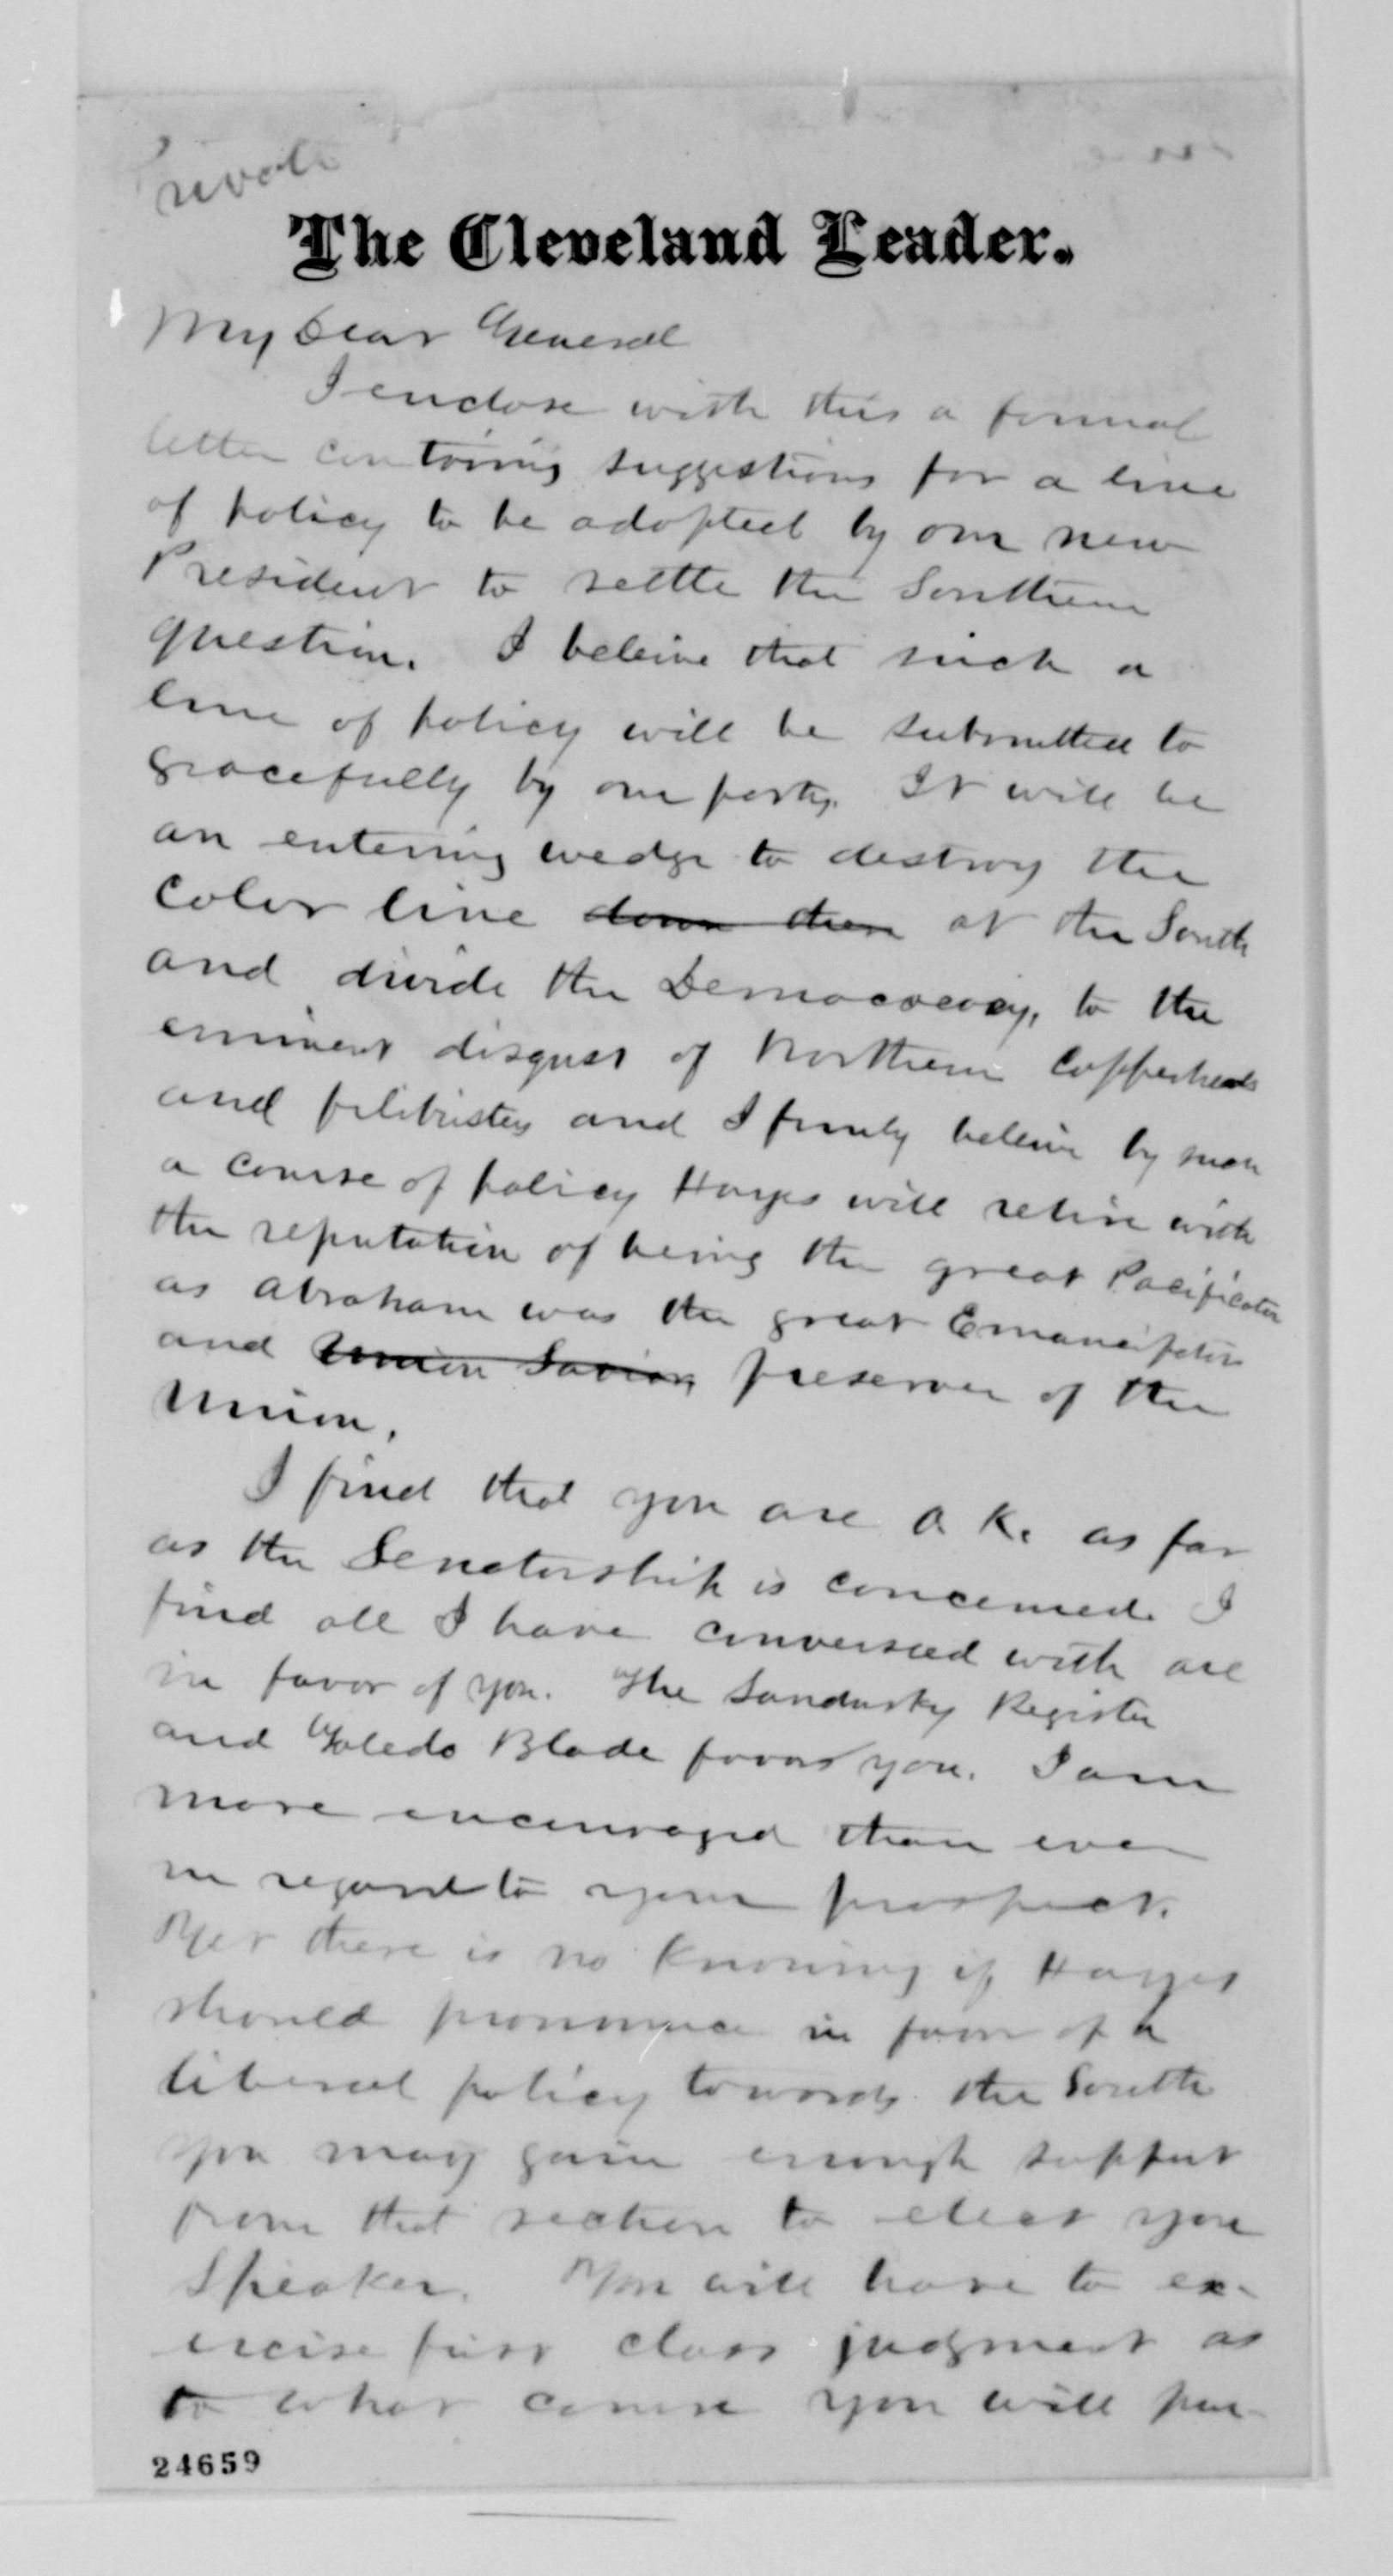 Private
The Cleveland Leader.
My Dear General
I enclose with this a formal
letter containing suggestions for a line
of policy to be adopted by our new
President to settle the Southern
question. I beleive that such a
line of policy will be submitted to
gracefully by our party. It will be
an entering wedge to destroy the
color line down there at the South
and divide the Democracy, to the
eminent disgust of Northern Copperheads
and filibusters and I firmly beleive by such
a course of policy Hayes will retire with
the reputation of being the great Pacificator
as Abraham was the great Emancipator
and Union Savior, preserver of the
Union.
I find that you are O.K. as far
as the Senatorship is concerned. I
find all I have conversed with are
in favor of you. The Sandusky Register
and Toledo Blade favor you. I am
more encouraged than ever
in regard to your prospect.
Yet there is no knowing if Hayes
should pronounce in favor of a
liberal policy towards the South
you may gain enough support
from that section to elect you
Speaker. You will have to ex-
ercise first class judgment as
to what course you will pur-
24659